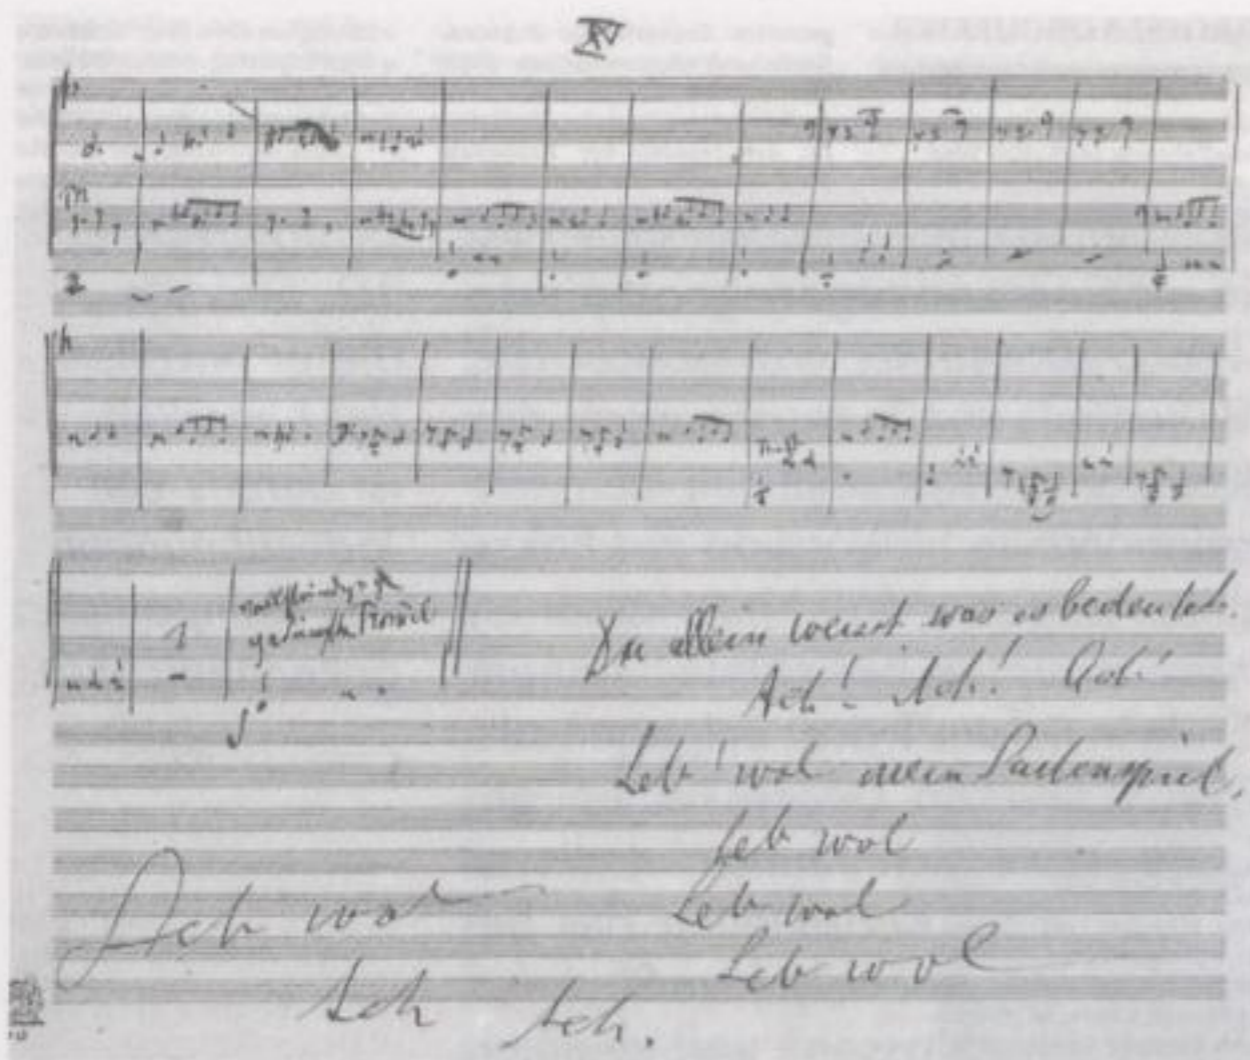 IV
vollständig
gedämpfte Trommel
Du allein weisst was es bedeutet.
Ach! Ach! Ach!
Leb' wol mein Saitenspiel,
Leb wol
Leb wol
Leb wol
Ach wol
Ach Ach.